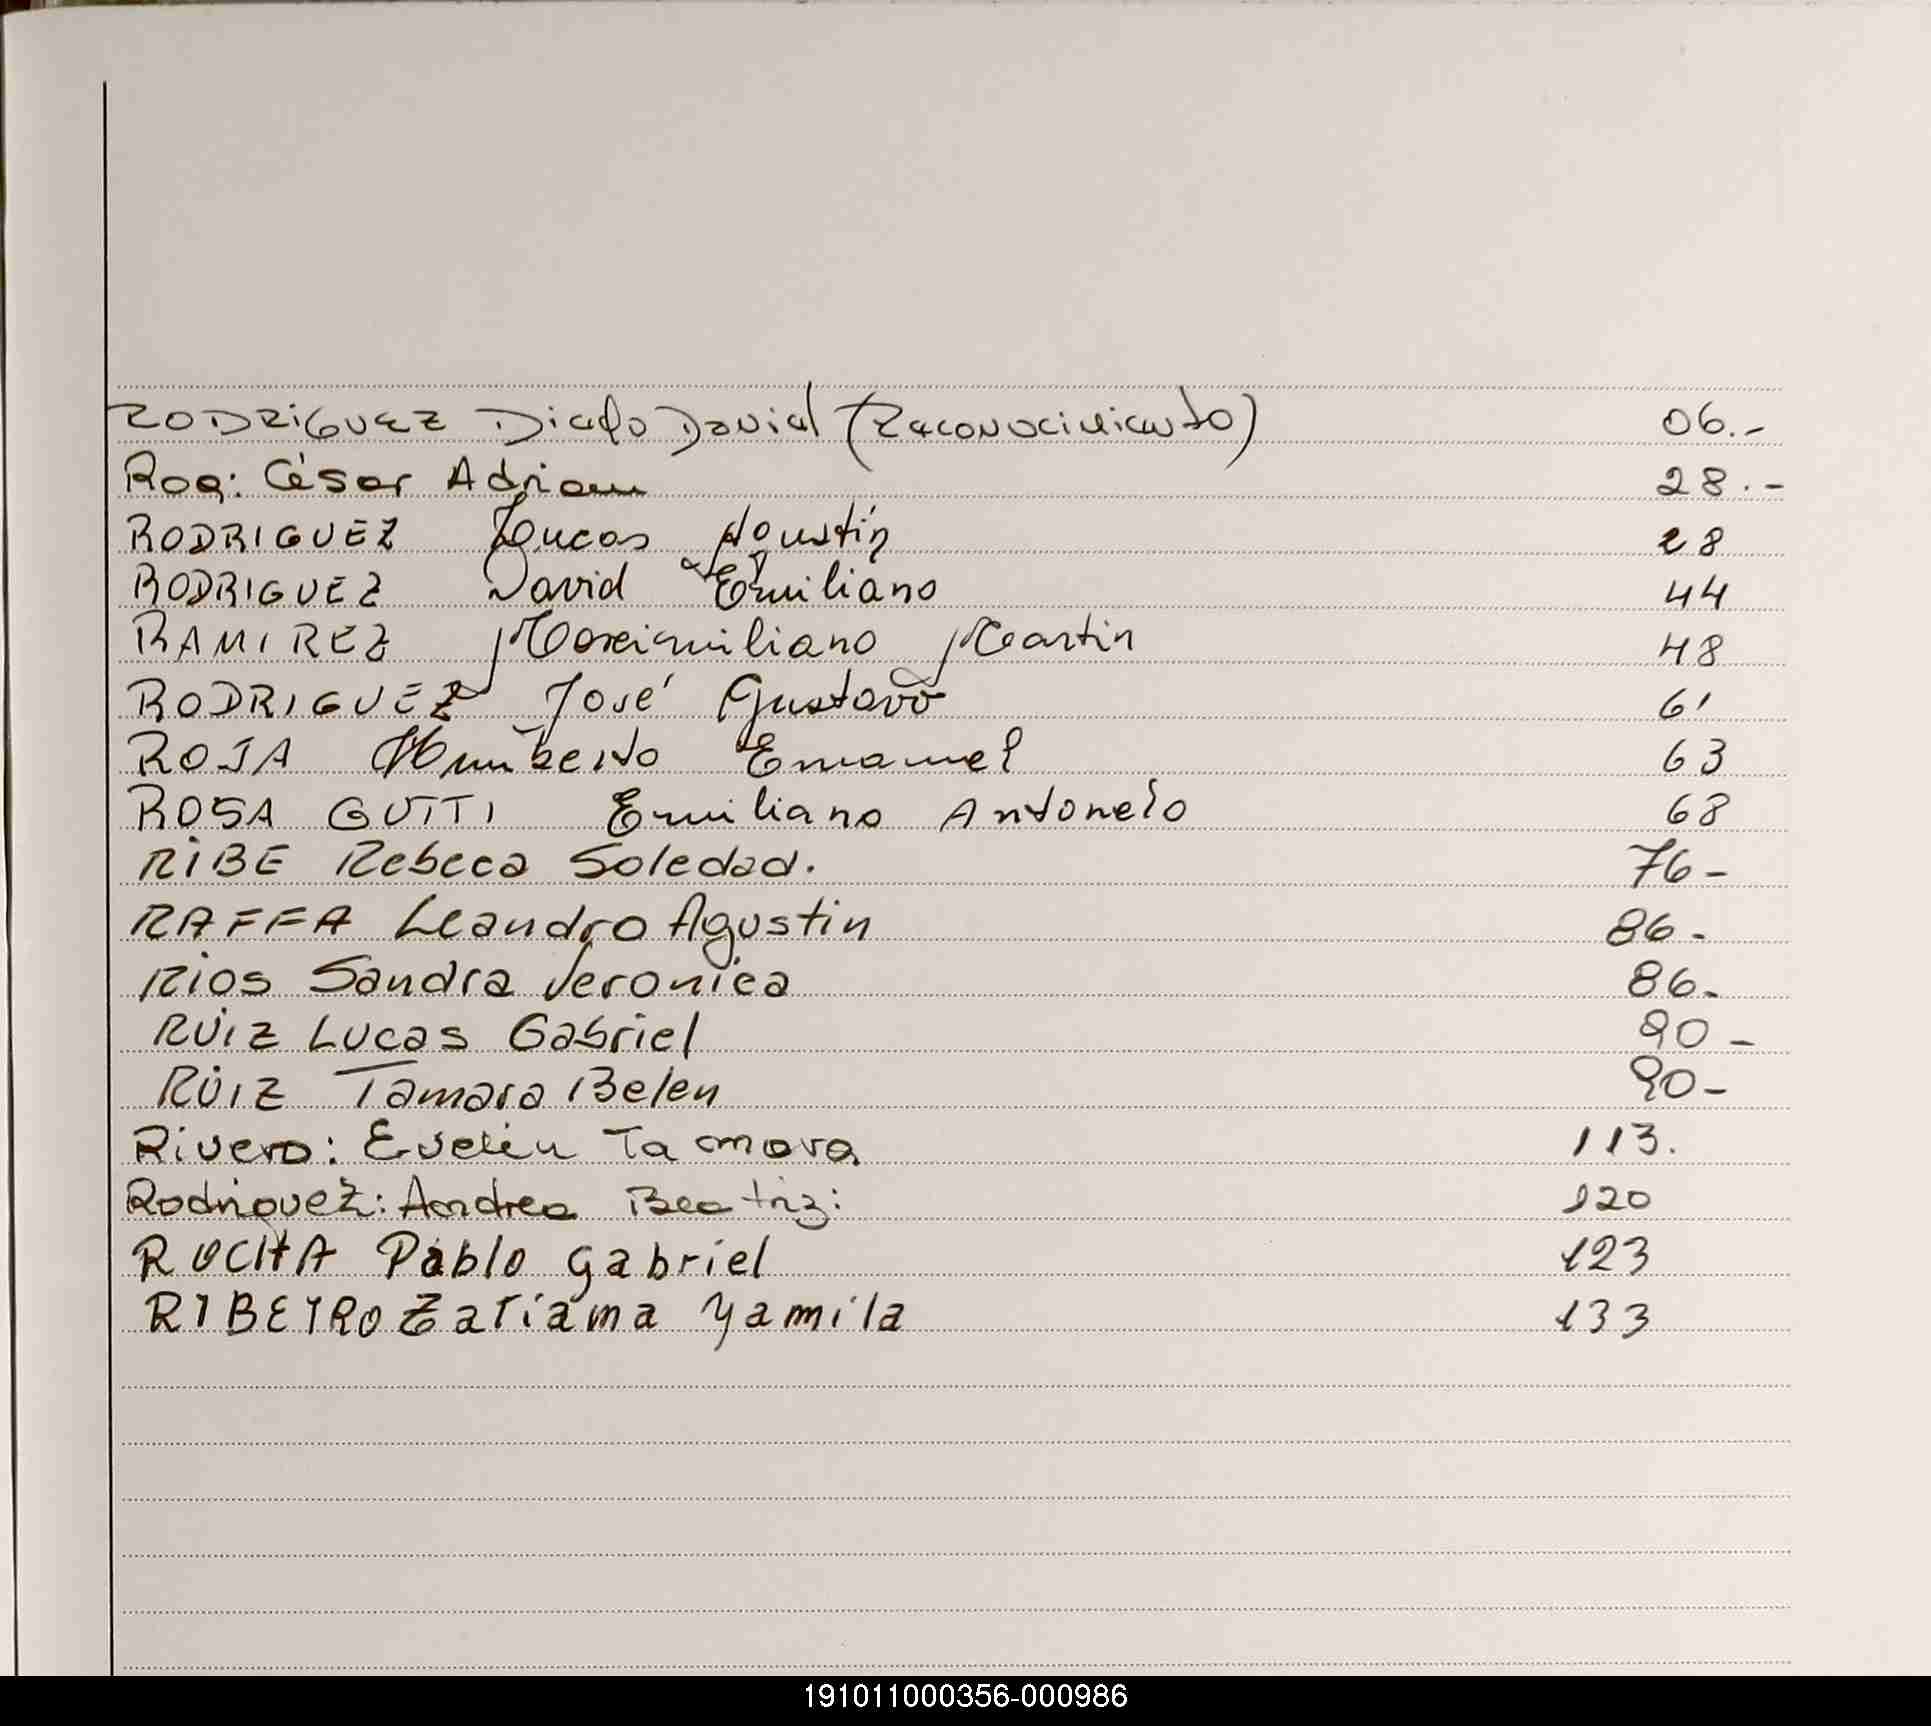 RODRIGUEZ Diego David (Reconocimiento) 06.-
Roa: César Adrian 28.-
RODRIGUEZ Lucas Agustín 28
RODRIGUEZ David Emiliano 44
RAMIREZ Maximiliano Martin 48
RODRIGUEZ José Gustavo 61
ROJA Humberto Emanuel 63
ROSA GUTTI Emiliano Antonelo 68
RIBE Rebeca Soledad. 76-
RAFFA Leandro Agustin 86-
RIOS Sandra Veronica 86-
RUIZ Lucas Gabriel 90-
RUIZ Tamara Belen 90-
Rivero: Evelin Tamara 113.
Rodriguez: Andrea Beatriz: 120
ROCHA Pablo Gabriel 123
RIBEIRO Zariama Yamila 133
191011000356-000986